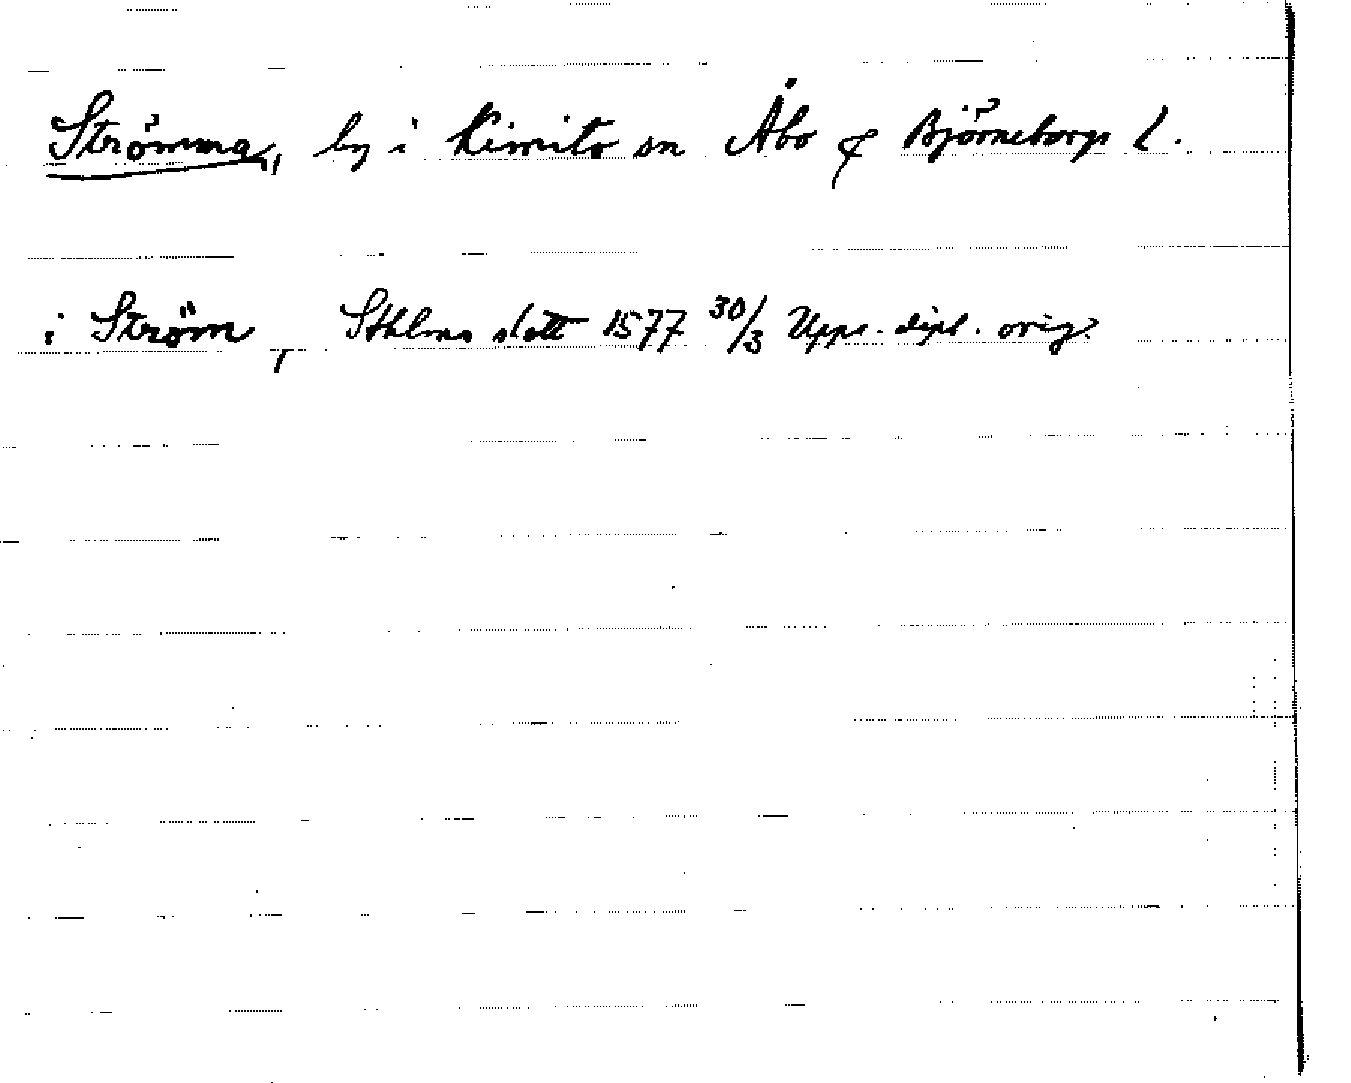 Strömma, by i Kimito sn Åbo & Björneborgs l.
i Ström, Sthlms slott 1577 30/3 Upps. dipl. orig.